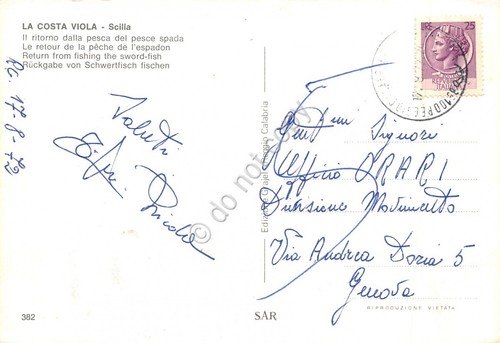 LA COSTA VIOLA - Scilla
Il ritorno dalla pesca del pesce spada
Le retour de la pêche de l'espadon
Return from fishing the sword-fish
Rückgabe von Schwertfisch fischen
RC 17-8-72
Saluti
382
SAR
do not copy
25
Gent.mi Signori
Ufficio ORARI
Divisione Movimento
Via Andrea Doria 5
Genova
RIPRODUZIONE VIETATA